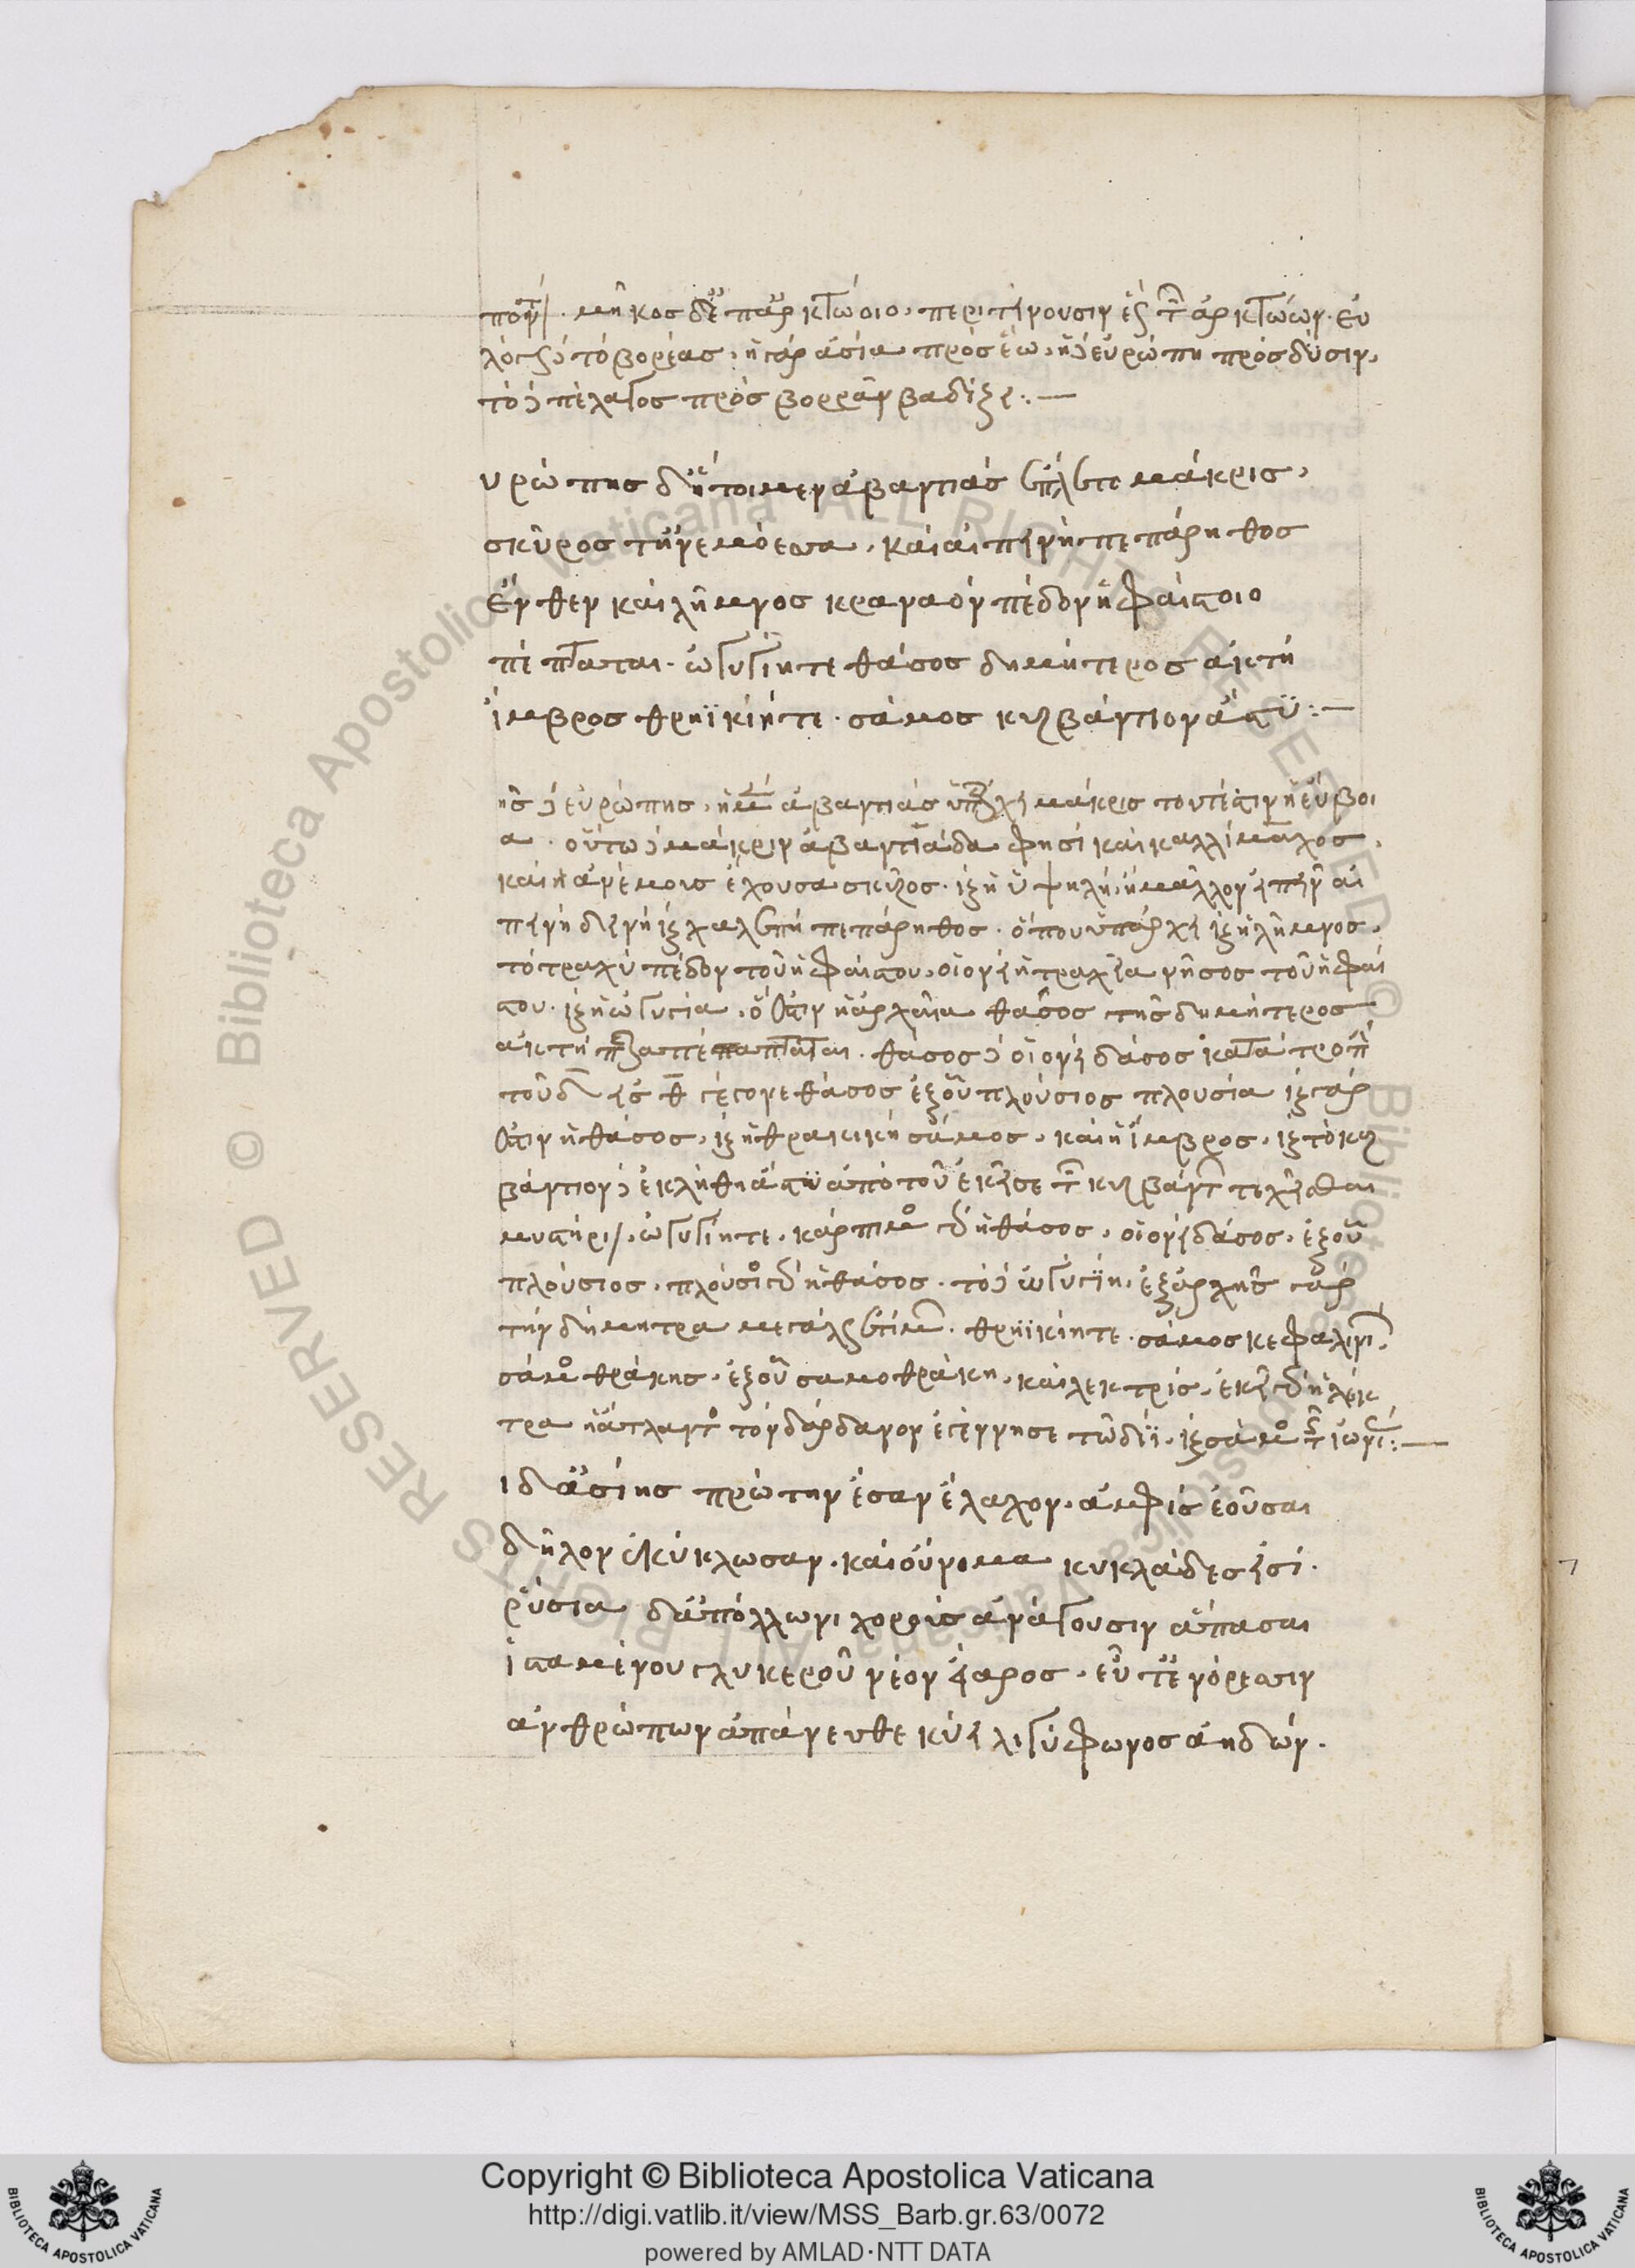 μῆκος δ' ἐπ' ἀρκτώοιο. περιτείνουσιν ἐς τ ἀρκτώων. εὔ
λόγως τὸ βορέας. ἡ γὰρ ἀσία πρὸς ἕω. ἡ δὲ εὐρώπη πρὸς δύσιν.
τὸ δὲ πέλαγος πρὸς βορρᾶν βαδίζει:—
υρώπης δ' ἤτοι μὲν ἀβαντιὰς ἔπλετο μάκρις.
σκῦρος τ' ἠνεμόεσσα. καὶ αἰπεινὴ πεπάρηθος
ἔνθεν καὶ λῆμνος κραναὸν πέδον ἡφαίστοιο
πέπταται. ὠγυγίη τε θάσος δημήτερος ἀκτή
ἴμβρος θρηϊκίη τε. σάμος κυρβάντιον ἄστυ:—
ῆς δὲ εὐρώπης. ἡ μὲν ἀβαντιὰς ὑπάρχει μάκρις τουτέστιν ἡ εὔβοι
α. οὕτω δὲ μάκριν ἀβαντιάδα φησὶ καὶ καλλίμαχος.
καὶ ἡ ἀνέμοις ἔχουσα σκῦρος. καὶ ἡ ὑψηλὴ. ἢ μᾶλλον εἰπεῖν αἰ
πεινὴ δεινὴ καὶ χαλεπὴ πεπάρηθος. ὅπου ὑπάρχει καὶ ἡ λῆμνος.
τὸ τραχὺ πέδον τοῦ ἡφαίστου. οἱονεὶ ἡ τραχεῖα νῆσος τοῦ ἡφαί
στου. καὶ ἡ ὠγυγία. ὅ ἐστιν ἡ ἀρχαῖα θάσος τῆς δημήτερος
ἀκτὴ πέπταται. θάσος δὲ οἱονεὶ δάσος κατὰ τροπὴν
τοῦ δ εἰς θ γέγονε θάσος ἐξ οὗ πλούσιος πλουσία καὶ γάρ
ἐστιν ἡ θάσος. καὶ ἡ θρακικὴ σάμος. καὶ ἡ ἴμβρος. καὶ τὸ κυρ
βάντιον δὲ ἐκλήθη ἄστυ ἀπὸ τοῦ ἐκεῖσε τ κυρβάντ τελεῖσθαι
μυστήρι. ὠγυγίη τε. κάρπιμο δ' ἡ θάσος. οἱονεὶ δάσος. ἐξ οὗ
πλούσιος. πλούσιο δ' ἡ θάσος. τὸ δὲ ὠγυγίη. ἐξ ἀρχῆς γὰρ
τὴν δήμητρα μεγάλως ἐτίμ. θρηϊκίη τε. σάμος κεφαλην.
σάμο θράκης. ἐξ οὗ σαμοθράκη. καὶ λεκτρίς. ἐκεῖ δ' ἡλέκ
τρα ἡ ἄτλαντο τὸν δάρδανον ἐγέννησε τῷ διΐ. καὶ σάμο τ ἰωνι:—
ι δ' ἀσίης πρώτην ἔσαν ἔλαχον. ἀμφὶς ἐοῦσαι
δῆλον ἐκύκλωσαν. καὶ οὔνομα κυκλάδες εἰσί.
ῥύσια δ' ἀπόλλωνι χοροὺς ἀνάγουσιν ἅπασαι
ἱσταμένου γλυκεροῦ νέον εἴαρος. εὖτ' ἐν ὄρεσσιν
ἀνθρώπων ἀπάνευθε κύει λιγύφωνος ἀηδών.
Biblioteca Apostolica Vaticana ALL RIGHTS RESERVED ©
Copyright © Biblioteca Apostolica Vaticana
http://digi.vatlib.it/view/MSS_Barb.gr.63/0072
powered by AMLAD·NTT DATA
BIBLIOTECA APOSTOLICA VATICANA
BIBLIOTECA APOSTOLICA VATICANA